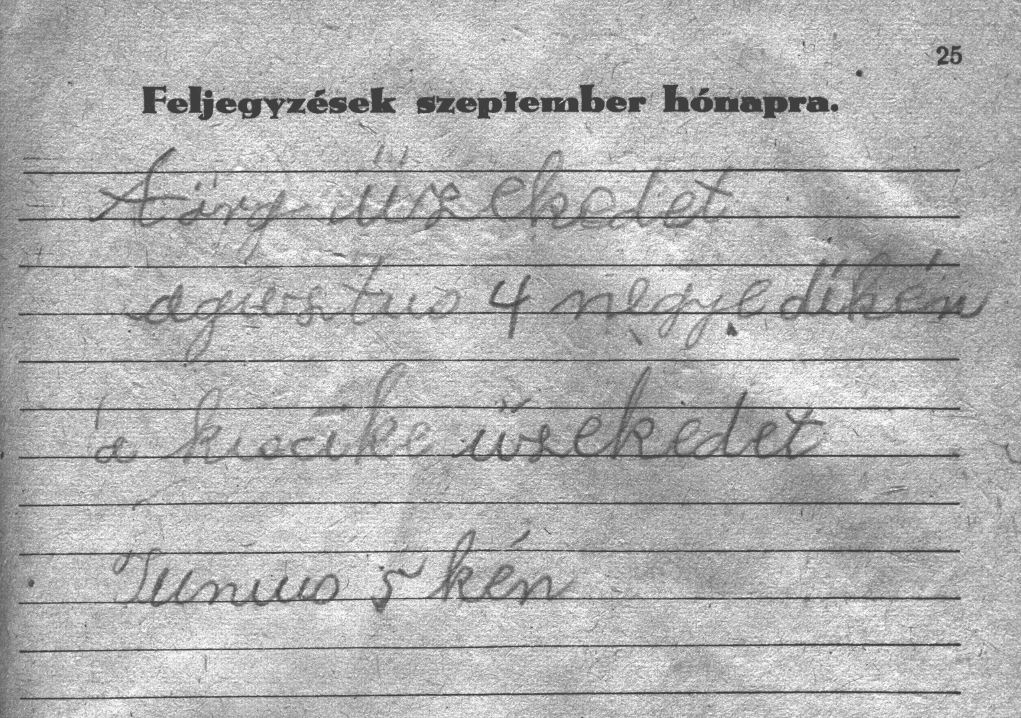 25
Feljegyzések szeptember hónapra.
A örg üszekedet
agusztus 4 negyedikén
a üszekedet
Junius 5 kén